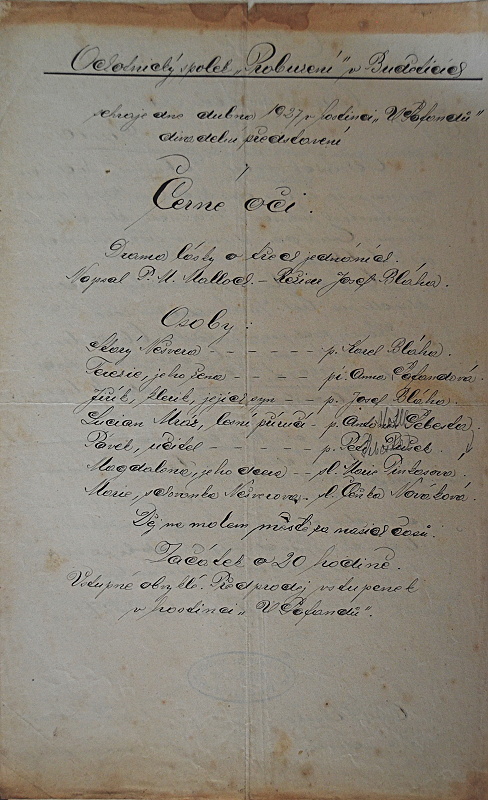 Ochotnický spolek „Probuzení" v Buděticích
sehraje dne dubna 1937 v hostinci „U Pofandů"
divadelní představení
Černé oči.
Drama lásky o třech jednáních.
Napsal P. M. Malloch. – Režie Josef Bláha.
Osoby:
Starý Nešvera – – – – – p. Karel Bláha.
Terezie, jeho žena – – – – pí. Anna Pofandová.
Jiřík, klerik, jejich syn – – p. Josef Bláha.
Lucian Mráz, lesní příručí – p. Čeberka
Pávek, učitel – – – – – p.
Magdalena, jeho dcera – – sl. Marie Pinkasová.
Marie, schovanka Nešverova, sl. Nováková.
Děj na malém městě za našich časů.
Začátek o 20 hodině.
Vstupné obyklé. Předprodej vstupenek
v hostinci „U Pofandů".